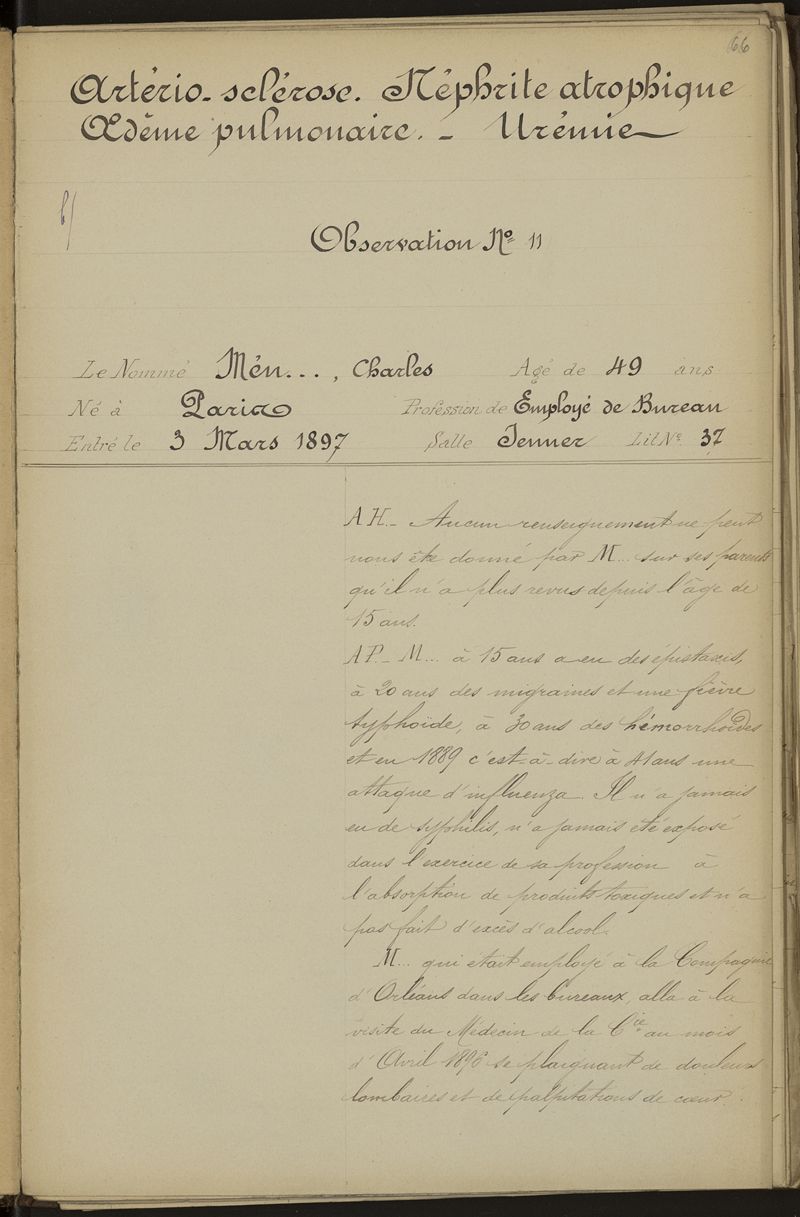 66
Artério-sclérose. Néphrite atrophique
Œdême pulmonaire. - Urémie
b)
Observation No 11
Le Nommé Mén..., Charles Agé de 49 ans
Né à Paris Profession de Employé de Bureau
Entré le 3 Mars 1897 Salle Jenner Lit No 37
A H. - Aucun renseignement ne peut
nous être donné par M... sur ses parents
qu'il n'a plus revus depuis l'âge de
15 ans.
AP. - M... à 15 ans a eu des épistaxis,
à 20 ans des migraines et une fièvre
typhoïde, à 30 ans des hémorrhoïdes
et en 1889 c'est-à-dire à 41 ans une
attaque d'influenza. Il n'a jamais
eu de syphilis, n'a jamais été exposé
dans l'exercice de sa profession à
l'absorption de produits toxiques et n'a
pas fait d'excès d'alcool.
M... qui était employé à la Compagnie
d'Orléans dans les bureaux, alla à la
visite du Médecin de la Cie au mois
d'Avril 1896 se plaignant de douleurs
lombaires et de palpitations de cœur.